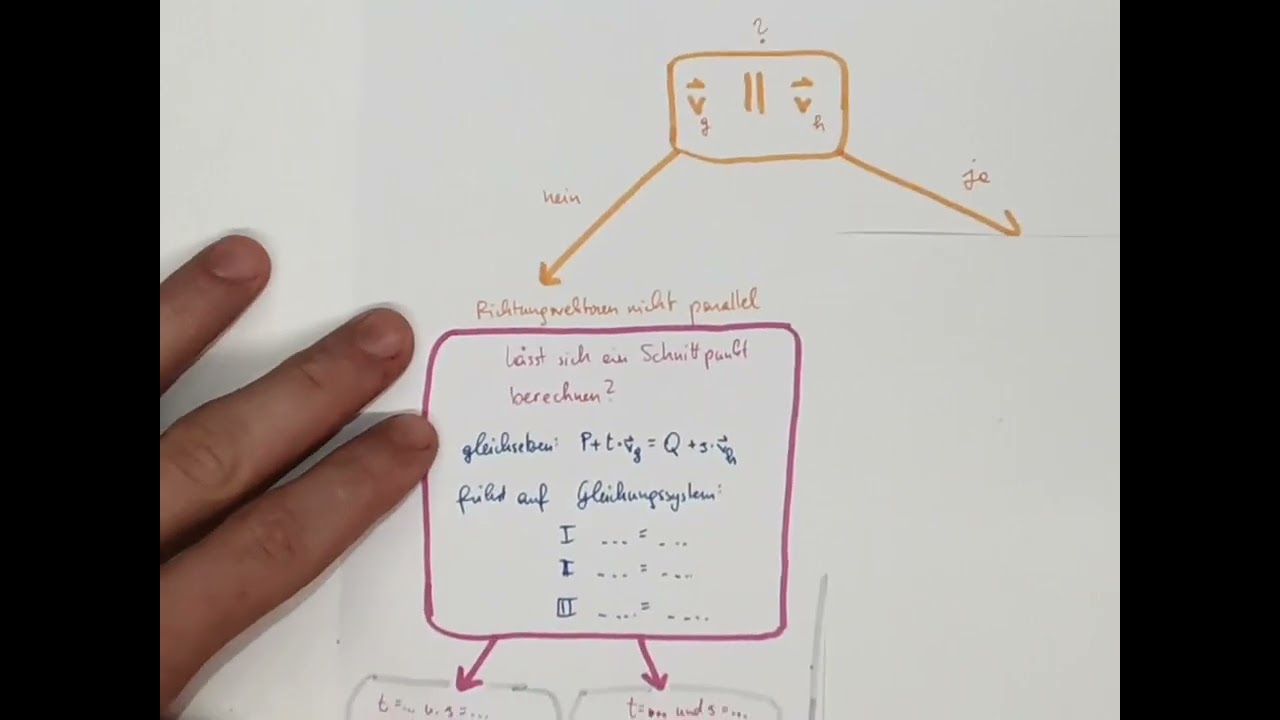 ?
v⃗g || v⃗h
nein
ja
Richtungsvektoren nicht parallel
lässt sich ein Schnittpunkt
berechnen?
gleichseben: P+t·v⃗g = Q+s·v⃗h
führt auf Gleichungssystem:
I ... = ....
I ... = ....
III .... = ....
t=... u. s=...
t=... und s=...